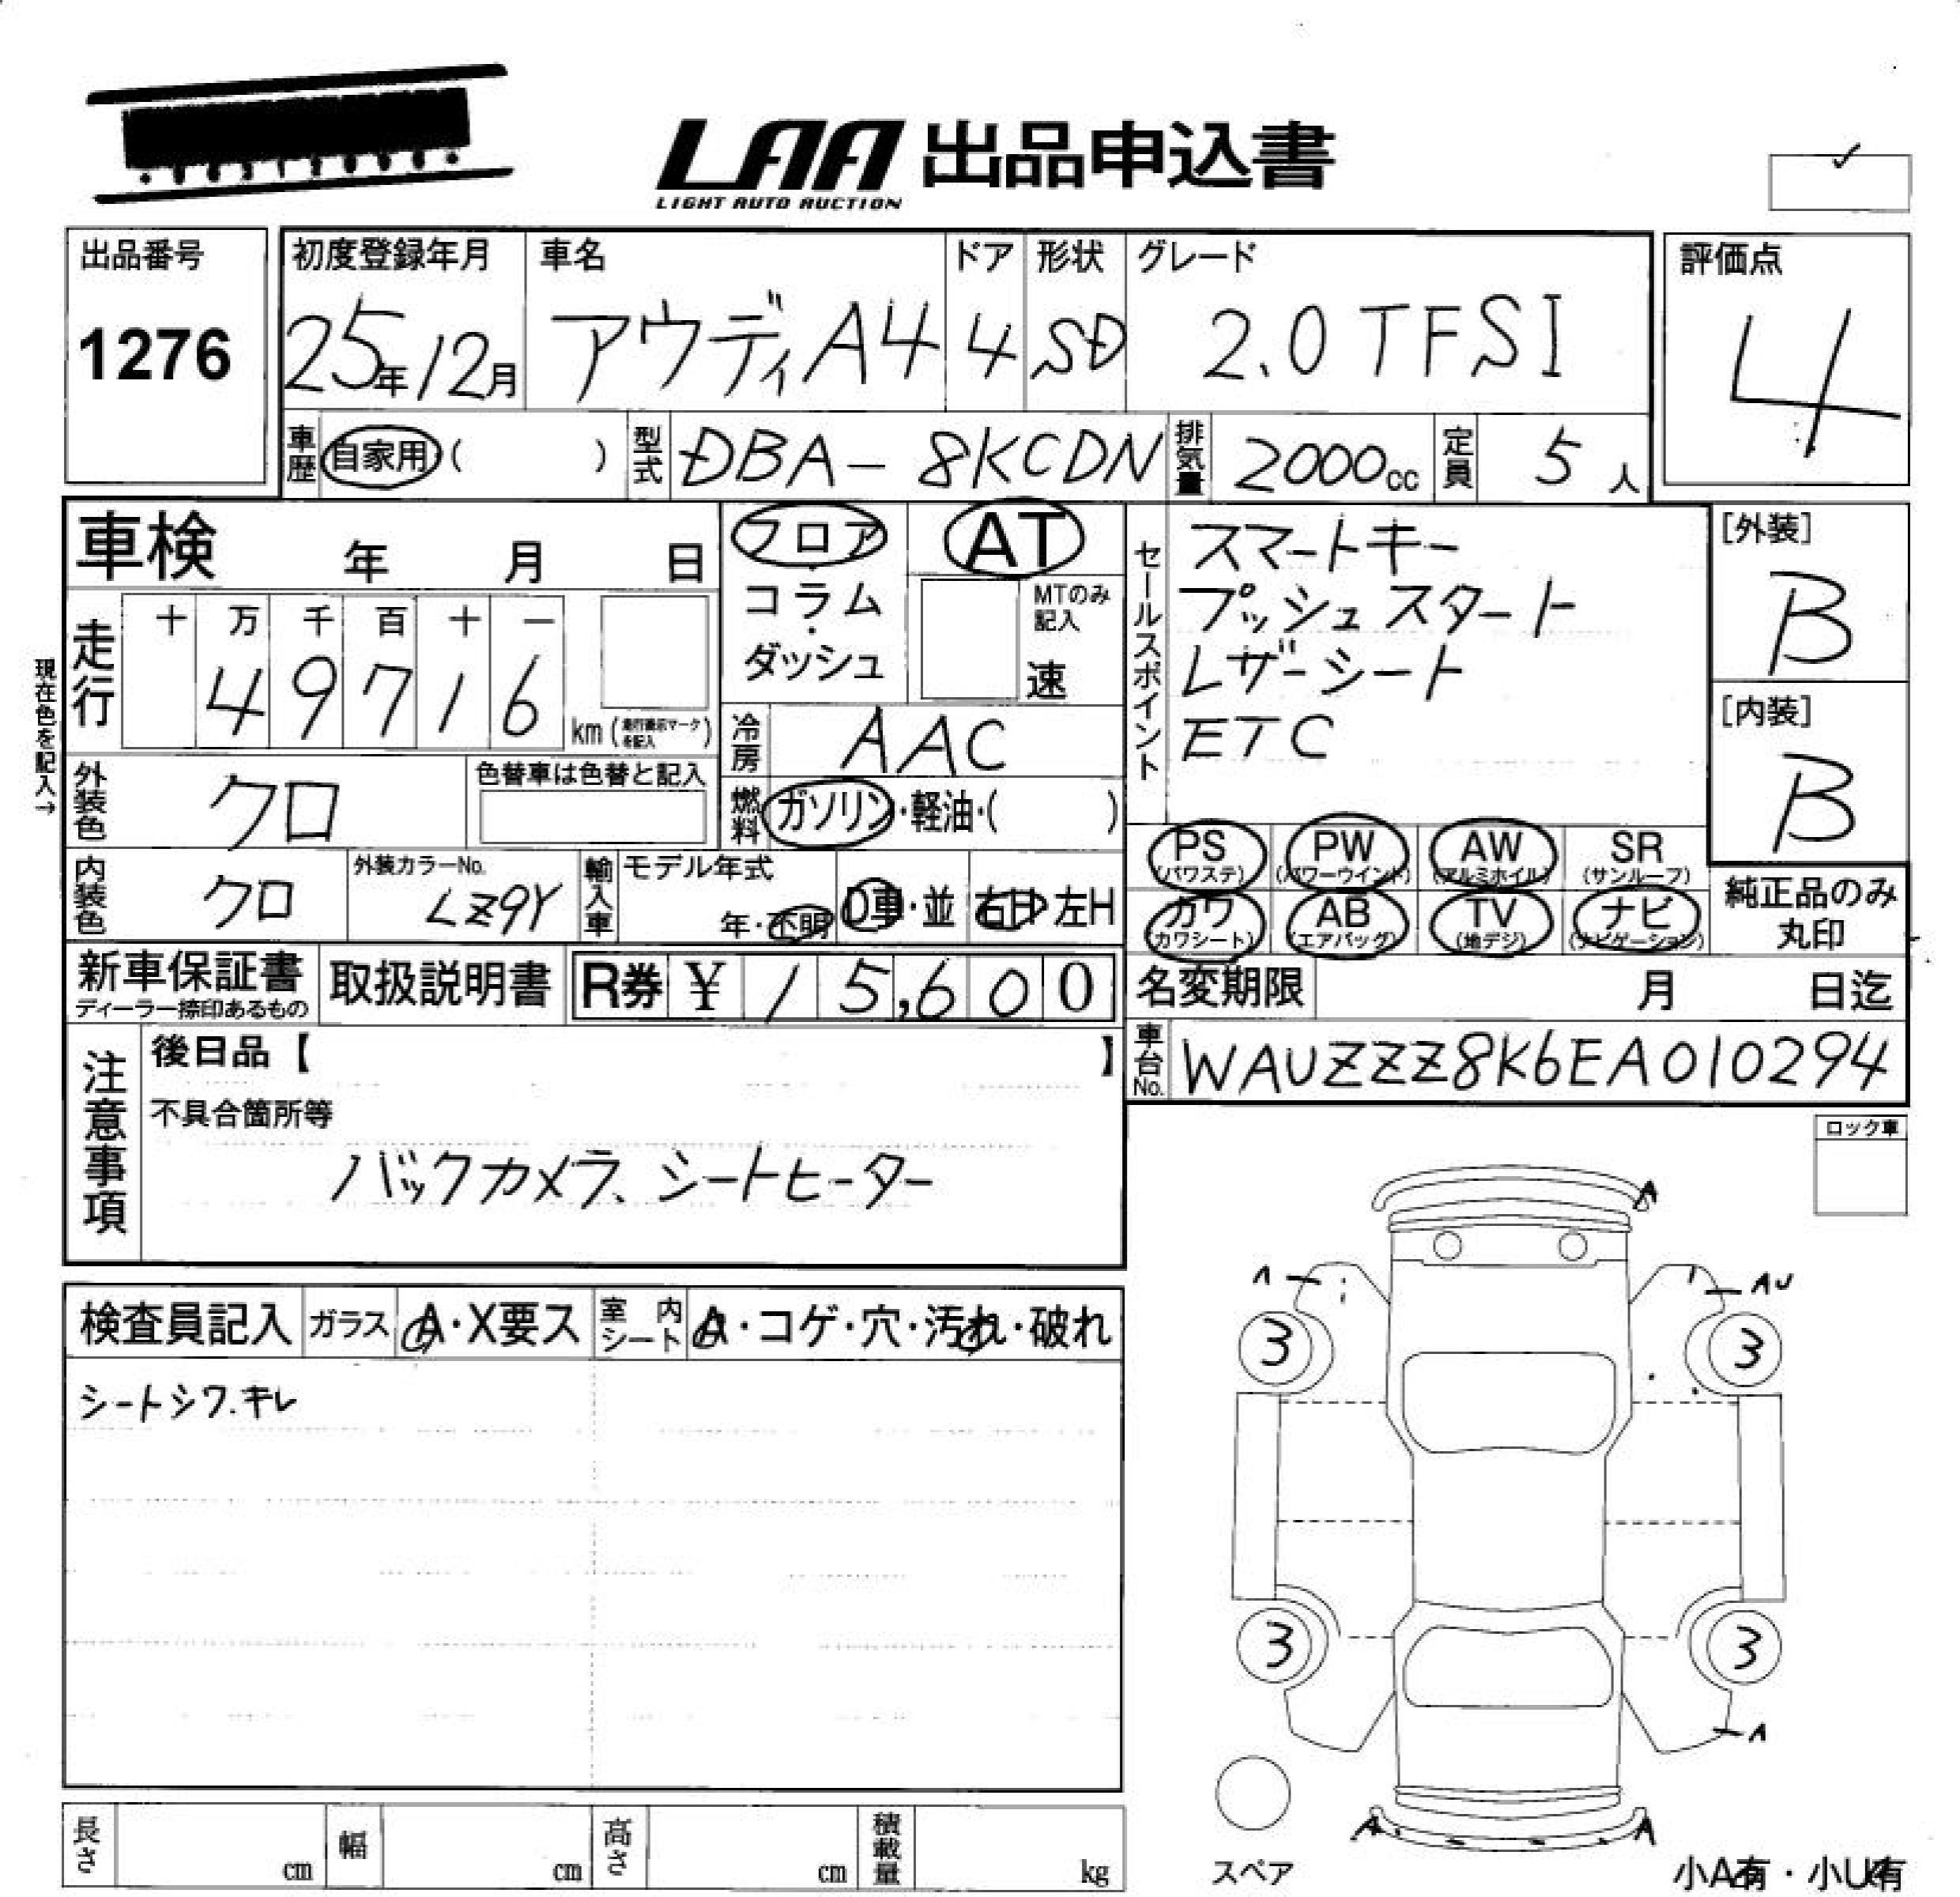 LAA 出品申込書
LIGHT AUTO AUCTION
出品番号
1276
初度登録年月
25年12月
車名
アウディA4
ドア
4
形状
SD
グレード
2.0TFSI
評価点
4
車歴
自家用( )
型式
DBA-8KCDN
排気量
2000cc
定員
5人
車検 年 月 日
現在色を記入→
走行
十 万 千 百 十 一
4 9 7 1 6
km(走行表示マークを記入)
フロア
コラム
・
ダッシュ
AT
MTのみ記入
速
冷房
AAC
燃料
ガソリン・軽油・( )
セールスポイント
スマートキー
プッシュスタート
レザーシート
ETC
[外装]
B
[内装]
B
外装色
クロ
色替車は色替と記入
内装色
クロ
外装カラーNo.
LZ9Y
輸入車
モデル年式
年・不明
D車・並
右H 左H
PS
(パワステ)
PW
(パワーウインド)
AW
(アルミホイル)
SR
(サンルーフ)
カワ
(カワシート)
AB
(エアバッグ)
TV
(地デジ)
ナビ
(ナビゲーション)
純正品のみ
丸印
新車保証書
ディーラー捺印あるもの
取扱説明書
R券 ¥ 15,600
名変期限 月 日迄
車台No.
WAUZZZ8K6EA010294
注意事項
後日品【 】
不具合箇所等
バックカメラ、シートヒーター
ロック車
検査員記入
ガラス
A・X要ス
室内シート
A・コゲ・穴・汚れ・破れ
シートシワ.キレ
A
A
AU
3
3
3
3
A
A
A
スペア
小A有・小U有
長さ cm
幅 cm
高さ cm
積載量 kg